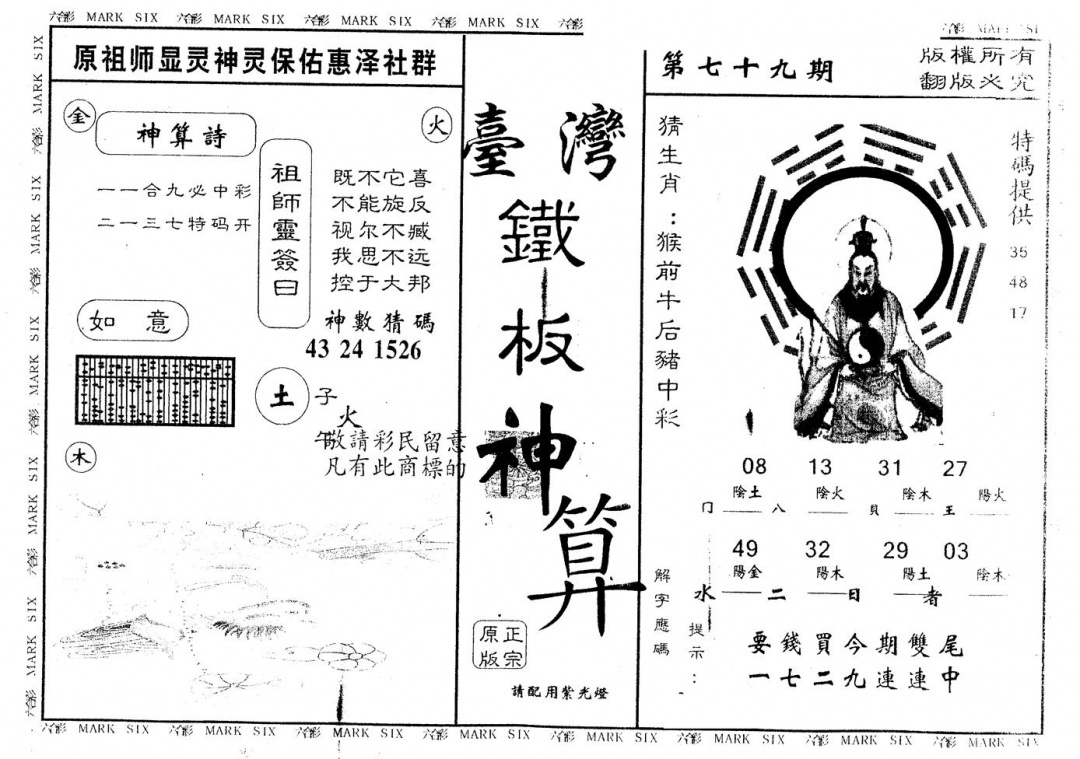 六合彩 MARK SIX 六合彩 MARK SIX 六合彩 MARK SIX 六合彩 MARK SIX 六合彩
原祖师显灵神灵保佑惠泽社群
金
火
神算詩
一一合九必中彩
二一三七特码开
祖師靈簽曰
既不它喜
不能旋反
视尔不臧
我思不远
控于大邦
神數猜碼
43 24 1526
如意
土
子
火
午
敬請彩民留意
凡有此商標的
木
臺灣
鐵板神算
正宗
原版
請配用紫光燈
第七十九期
版權所有
翻版必究
猜生肖：猴前牛后豬中彩
特碼提供
35
48
17
08 13 31 27
陰土 陰火 陰木 陽火
冂 八 貝 王
49 32 29 03
陽金 陽木 陽土 陰木
水 二 日 者
解字應碼
提示：
要錢買今期雙尾
一七二九連連中
六合彩 MARK SIX 六合彩 MARK SIX 六合彩 MARK SIX 六合彩 MARK SIX 六合彩 MARK SIX 六合彩 MARK SIX 六合彩 MARK SIX 六合彩 MARK SIX